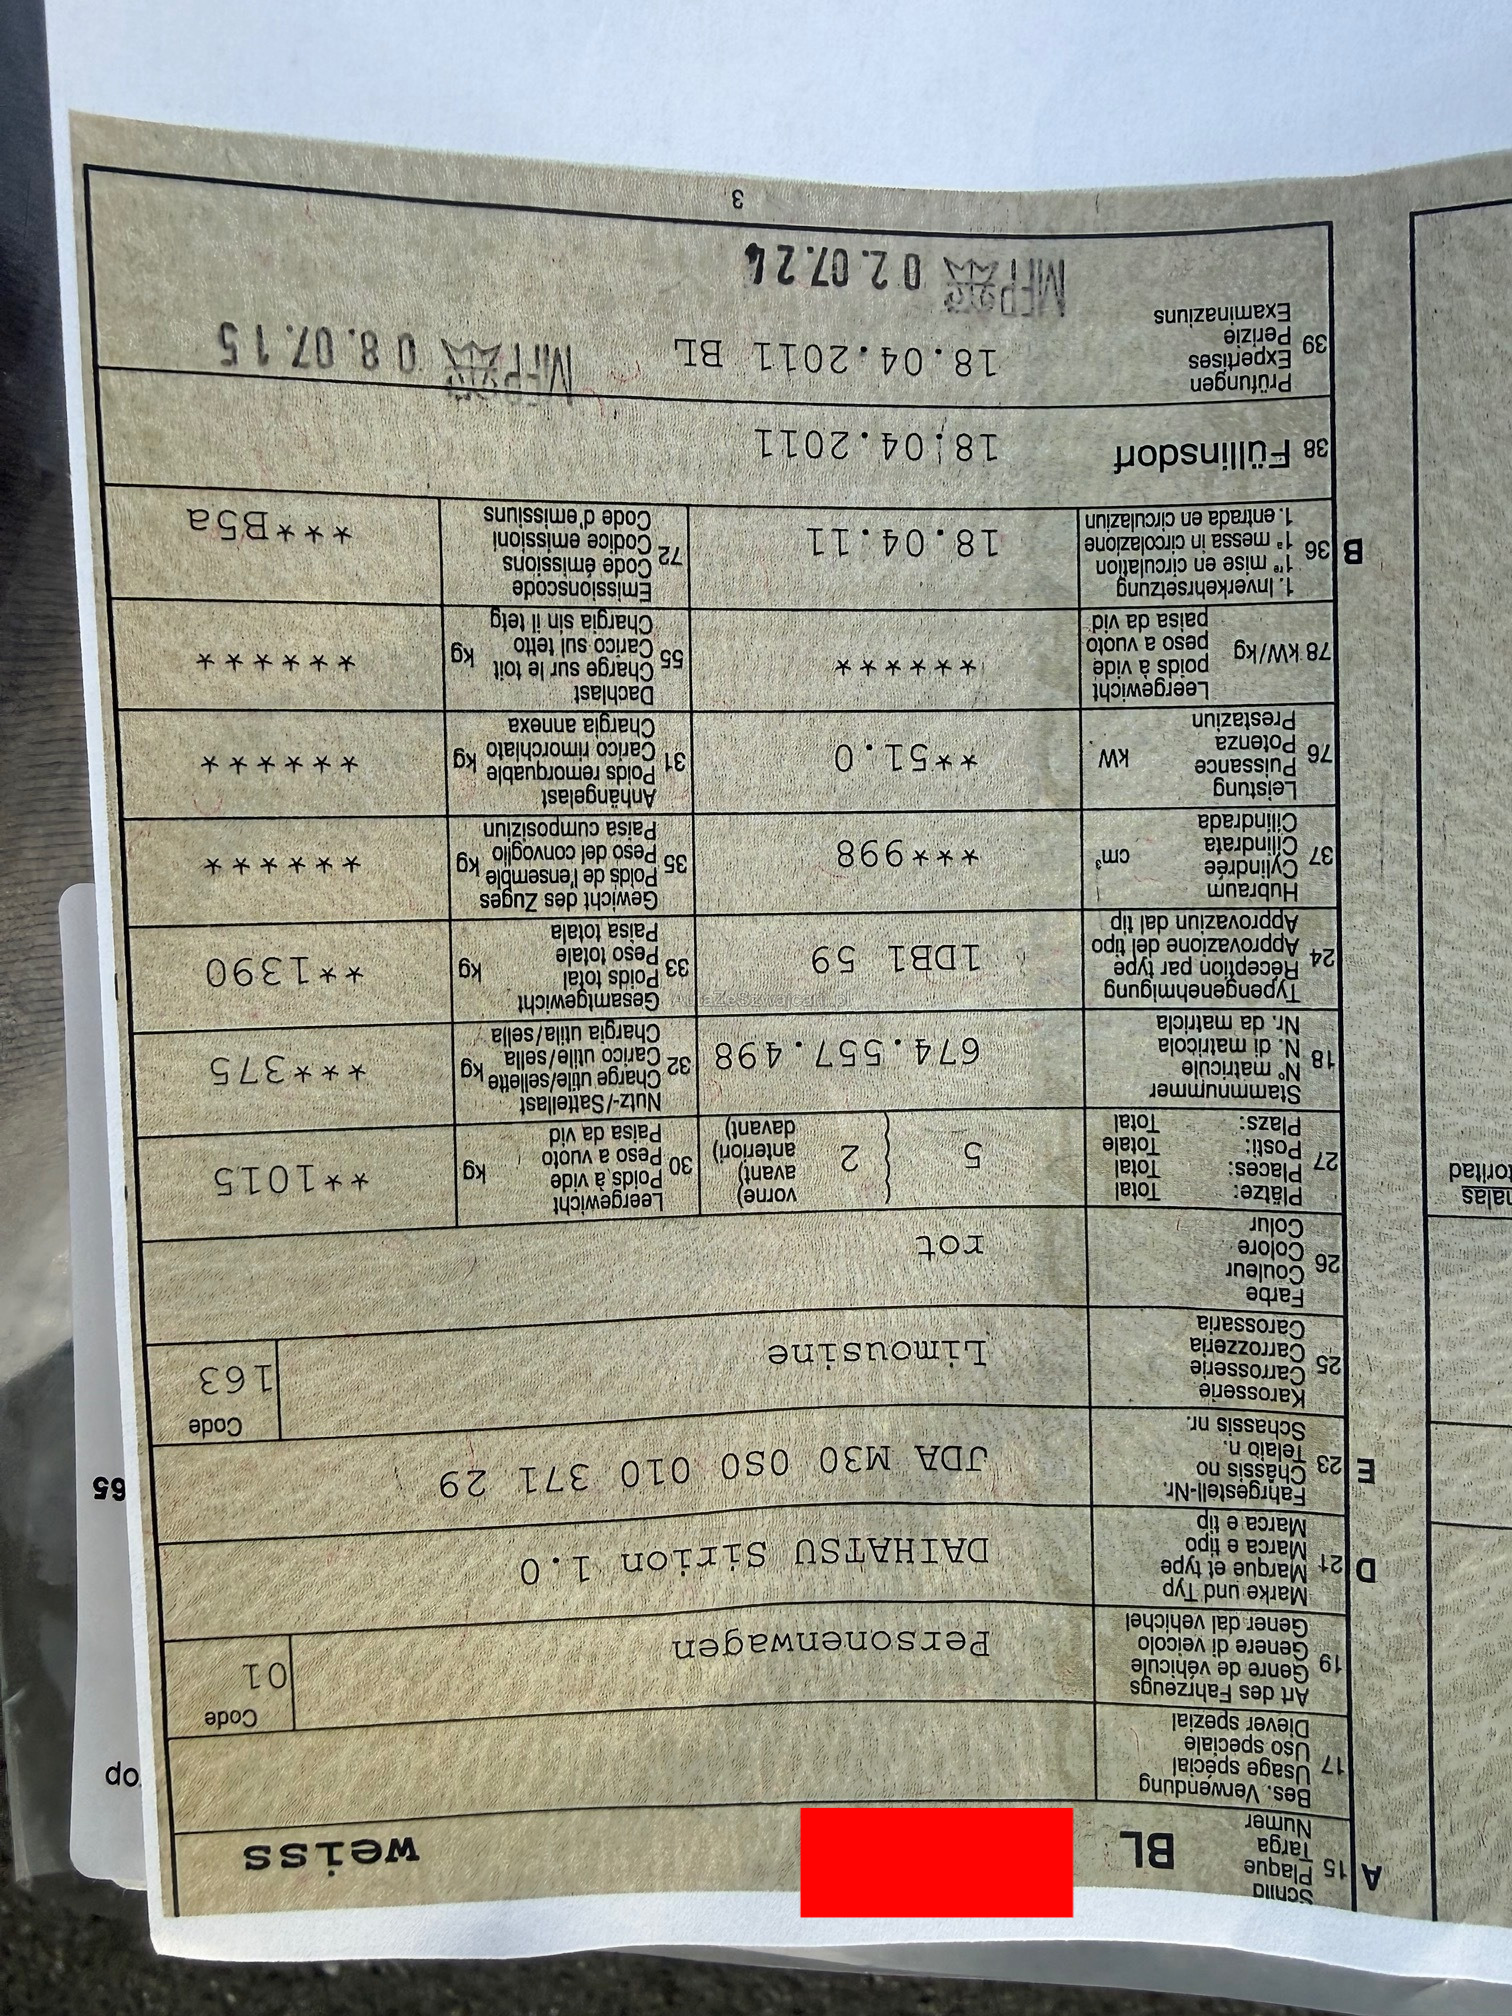 A 15 Schild
Plaque
Targa
Numer
BL
weiss
17 Bes. Verwendung
Usage spécial
Uso speciale
Diever spezial
19 Art des Fahrzeugs
Genre de véhicule
Genere di veicolo
Gener dal vehichel
Personenwagen
Code
01
D 21 Marke und Typ
Marque et type
Marca e tipo
Marca e tip
DAIHATSU Sirion 1.0
E 23 Fahrgestell-Nr.
Châssis no
Telaio n.
Schassis nr.
JDA M30 0S0 010 371 29
25 Karosserie
Carrosserie
Carrozzeria
Carossaria
Limousine
Code
163
26 Farbe
Couleur
Colore
Colur
rot
27 Plätze: Total
Places: Total
Posti: Totale
Plazs: Total
5
2
vorne)
avant)
anteriori)
davant)
30 Leergewicht
Poids à vide
Peso a vuoto
Paisa da vid
kg
**1015
18 Stammnummer
N° matricule
N. di matricola
Nr. da matricla
674.557.498
32 Nutz-/Sattellast
Charge utile/sellette
Carico utile/sella
Chargia utila/sella
kg
***375
24 Typengenehmigung
Réception par type
Approvazione del tipo
Approvaziun dal tip
1DB1 59
33 Gesamtgewicht
Poids total
Peso totale
Paisa totala
kg
**1390
AutaZeSzwajcarii.pl
37 Hubraum
Cylindrée
Cilindrata
Cilindrada
cm³
***998
35 Gewicht des Zuges
Poids de l'ensemble
Peso del convoglio
Paisa cumposiziun
kg
*******
76 Leistung
Puissance
Potenza
Prestaziun
kW
**51.0
31 Anhängelast
Poids remorquable
Carico rimorchiato
Chargia annexa
kg
*******
78 kW/kg Leergewicht
poids à vide
peso a vuoto
paisa da vid
*******
55 Dachlast
Charge sur le toit
Carico sul tetto
Chargia sin il tetg
kg
*******
B 36 1. Inverkehrsetzung
1re mise en circulation
1a messa in circolazione
1. entrada en circulaziun
18.04.11
72 Emissionscode
Code émissions
Codice emissioni
Code d'emissiuns
***B5a
38 Füllinsdorf
18.04.2011
39 Prüfungen
Expertises
Perizie
Examinaziuns
18.04.2011 BL
MFP 08.07.15
MFP 02.07.24
3
65
op
nalas
toritad